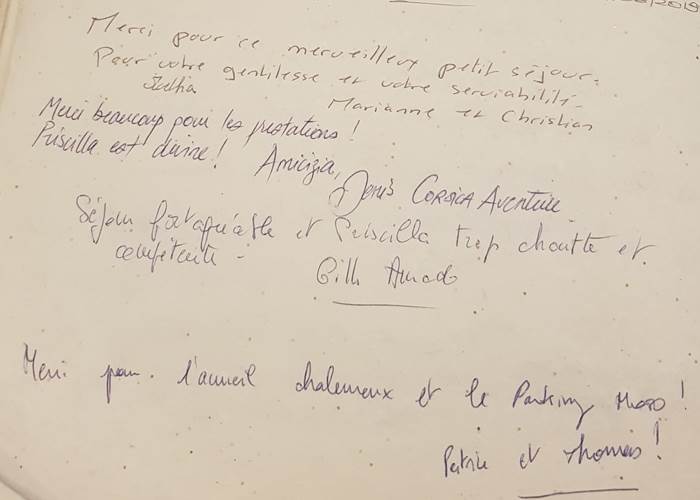 2019
Merci pour ce merveilleux petit séjour.
Pour votre gentillesse et votre serviabilité.
Marianne et Christian
Merci beaucoup pour les prestations !
Priscilla est divine ! Amicizia,
Denis CORSICA AVENTURE
Séjour fort agréable et Priscilla trop chouette et
compétente -
Gilles Amado
Merci pour l'accueil chaleureux et le Parking Moto !
Patrice et Thomas !